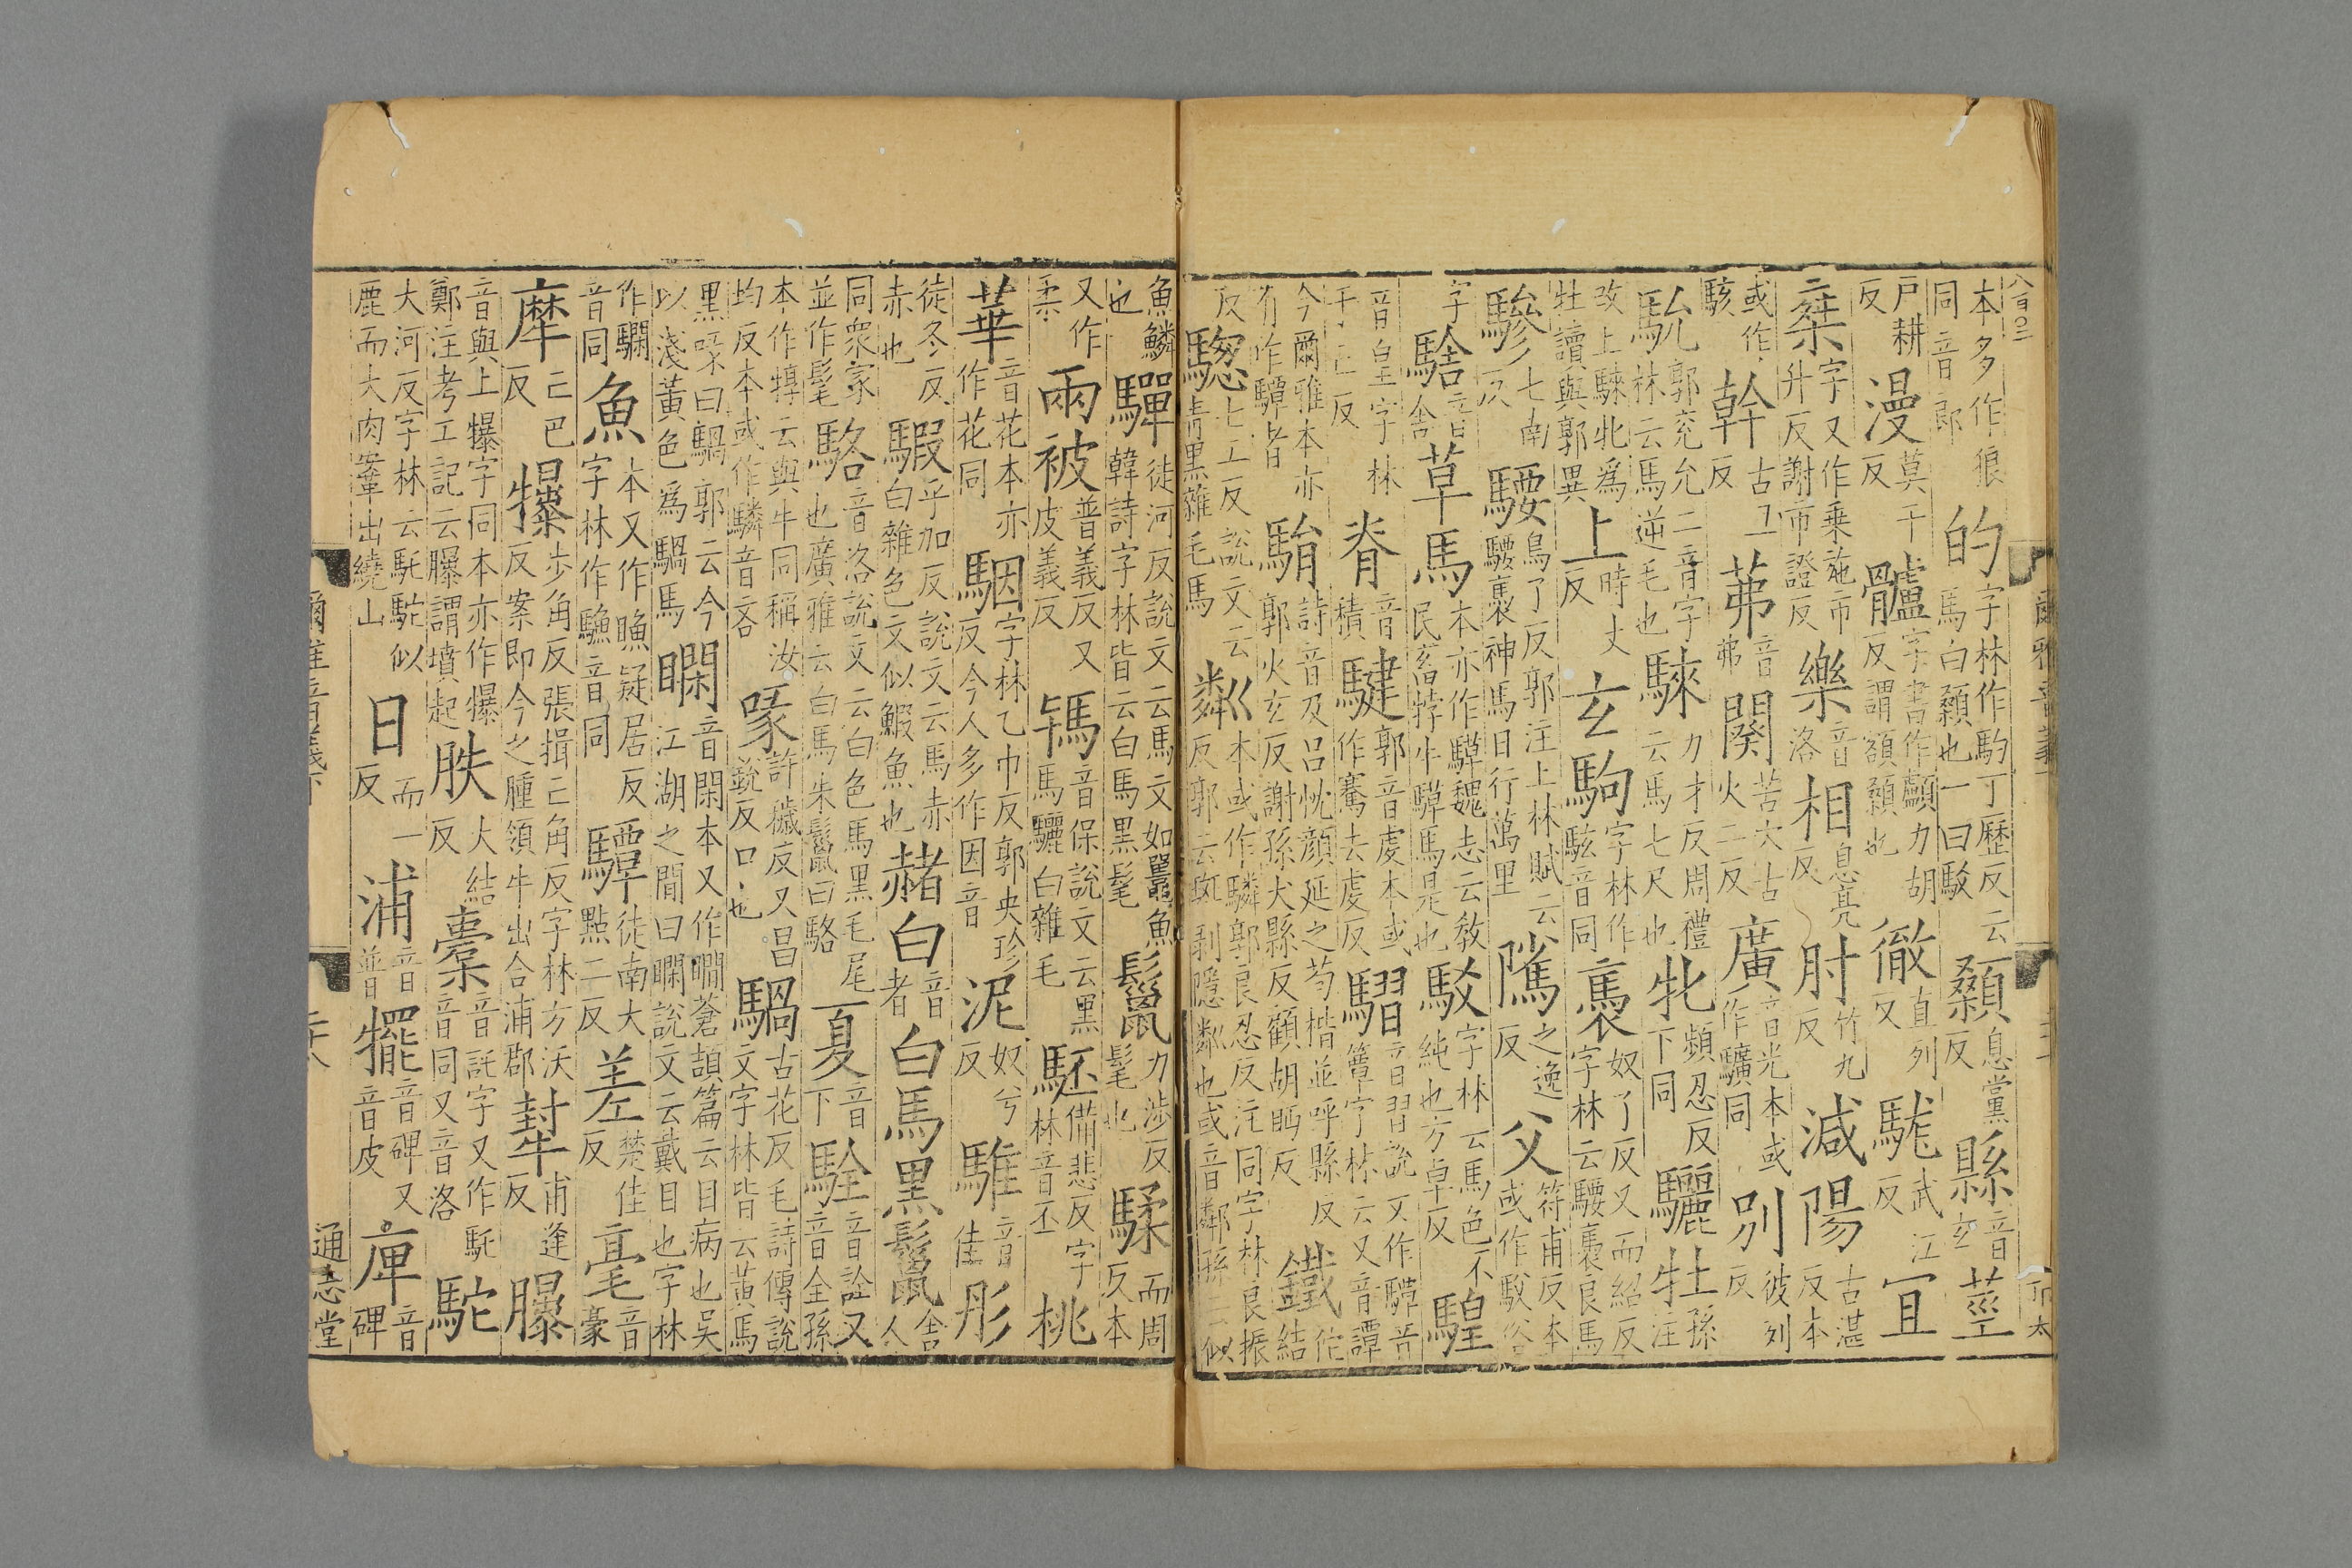 本多作狼同音郎的字林作馰丁歷反云馬白顙也一曰駮顙息黨反縣音玄莖
戶耕反漫莫干反髗字書作顱力胡反謂額顙也徹直列反駹武江反宜
椉字又作乗施市升反謝市證反樂音洛相息亮反肘竹九反減陽古湛反本
或作駭幹古旦反茀音弗闋苦穴古火二反廣音光本或作驥同別彼列反
馻郭兖允二音字林云馬逆毛也騋力才反周禮云馬七尺也牝頻忍反下同驪牡孫注
改上騋牝爲牡讀與郭異上時丈反玄駒字林作駭音同褭奴了反又而紹反字林云騕褭良馬
驂七南反騕烏了反郭注上林賦云騕褭神馬日行萬里隲之逸反父符甫反本或作䮛俗
字騇音舍草馬本亦作騲魏志云教民畜牸牛騲馬是也駮字林云馬色不純也方卓反騜
音皇字林于亡反脊音積騝郭音虔本或作騫去虔反騽音習說文作驔音簟字林云又音譚
今爾雅本亦有作驔者駽詩音及呂忱顏延之苟楷並呼縣反郭火玄反謝孫犬縣反顧胡眄反鐵佗結
反騘七工反說文云青黑雜毛馬粼本或作驎郭良忍反注同字林良振反郭云斑剥隱粼也或音鄰孫云似
魚鱗也驒徒河反說文云馬文如鼉魚韓詩字林皆云白馬黑髦鬣力涉反髦也騥而周反本
又作柔兩被普義反又皮義反䮀音保說文云黑馬驪白雜毛駓備悲反字林音丕桃
華音花本亦作花同駰字林乙巾反郭央珍反今人多作因音泥奴兮反騅音佳彤
徒冬反赤也騢乎加反說文云馬赤白雜色文似鰕魚也赭白音者白馬黑鬣舍人
同衆家並作髦駱音洛說文云白色馬黑毛尾也廣雅云白馬朱鬣曰駱夏音下駩音詮又音全孫
本作犉云與牛同稱汝均反本或作驎音吝喙許穢反又昌銳反口也騧古花反毛詩傳說文字林皆云黃馬
黑喙曰騧郭云今以淺黃色爲騧馬瞯音閑本又作瞷蒼頡篇云目病也吳江湖之間曰瞯說文云戴目也字林
作騆音同魚本又作䁩疑居反字林作䮃音同驔徒南大點二反差楚佳反毫音豪
犘亡巴反犦步角反張揖亡角反字林方沃反案即今之腫領牛出合浦郡犎甫逢反㬥
音與上犦字同本亦作犦鄭注考工記云㬥謂墳起胅大結反橐音託字又作馲音同又音洛駝
大河反字林云馲駝似鹿而大肉鞌出繞山日而一反浦音普犤音碑又音皮庳音碑
爾雅音義下 三十八 通志堂